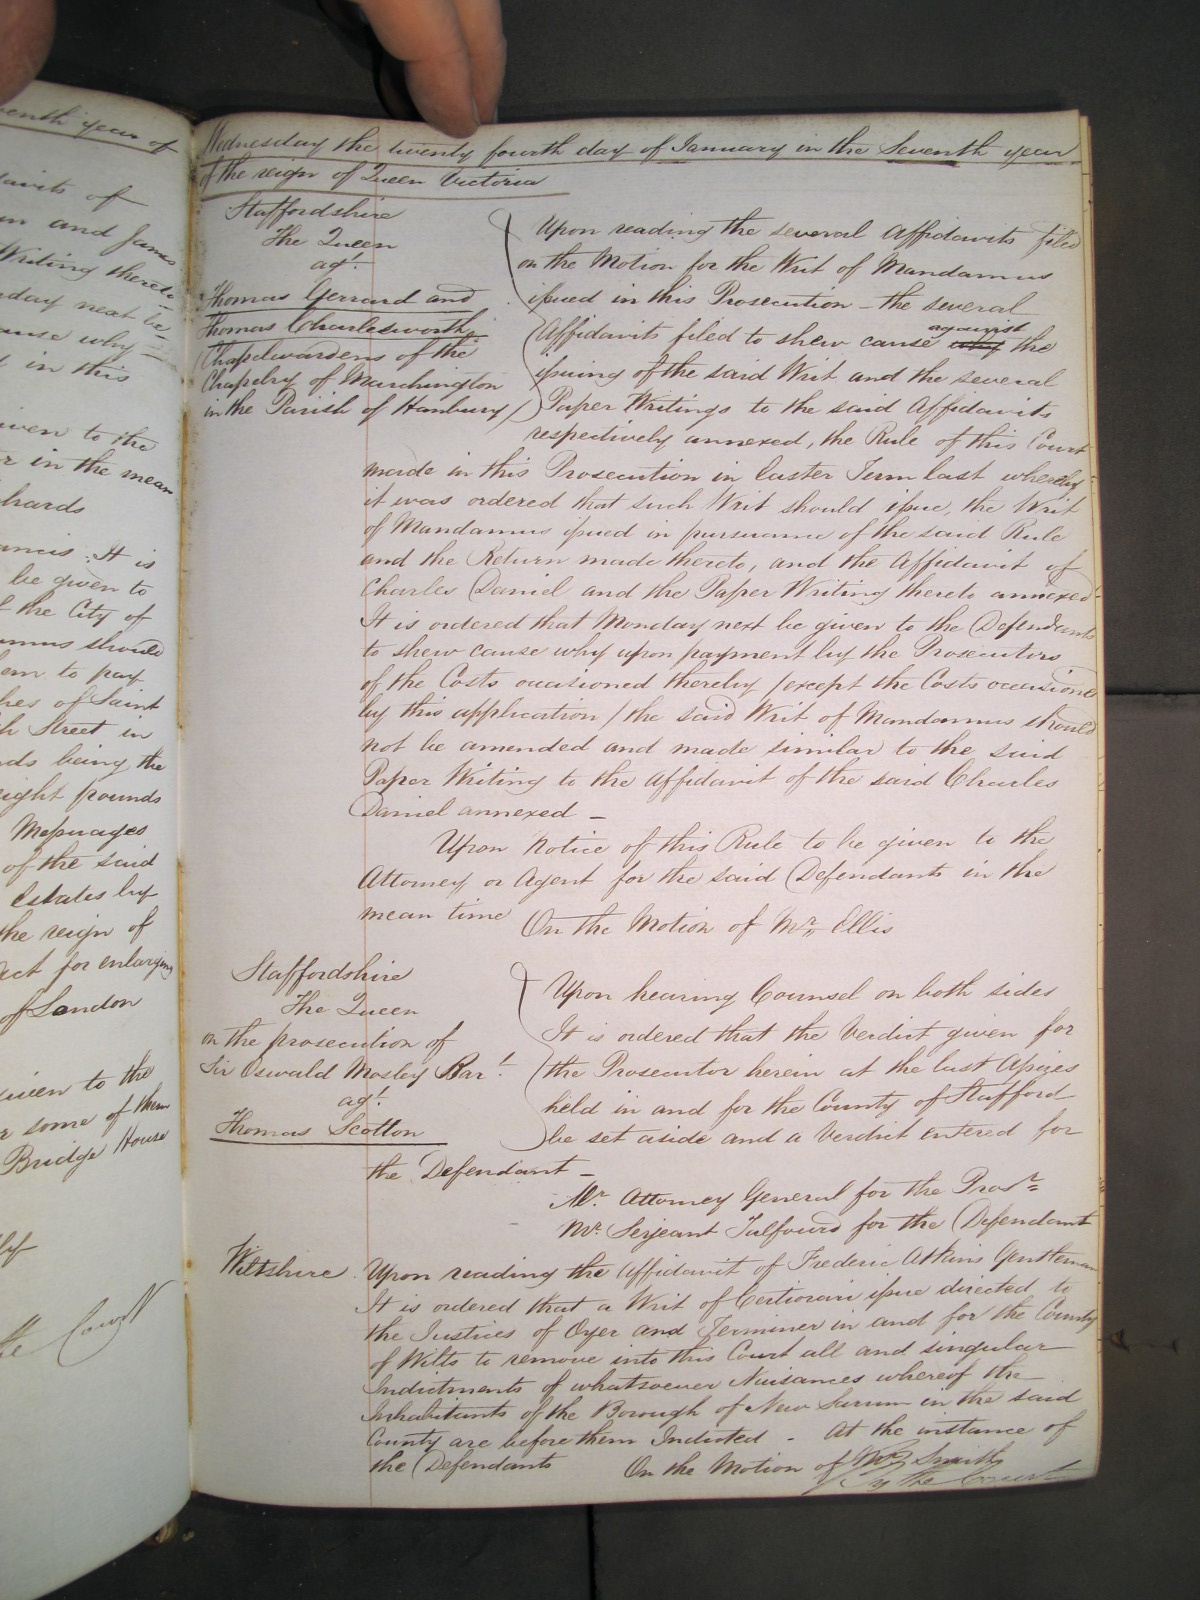 venth year of
davits of
m and James
Writing thereto
day next be
ause why
t in this
iven to the
r in the mean
hards
ancis. It is
be given to
f the City of
amus should
em to pay
hes of Saint
h Street in
ds being the
eight pounds
Messuages
of the said
Estates by
the reign of
Act for enlarging
of London
given to the
r some of them
Bridge House
the Court
Wednesday the twenty fourth day of January in the Seventh year
of the reign of Queen Victoria
Staffordshire
The Queen
agt.
Thomas Gerrard and
Thomas Charlesworth
Chapelwardens of the
Chapelry of Marchington
in the Parish of Hanbury
Upon reading the several Affidavits filed
on the Motion for the Writ of Mandamus
issued in this Prosecution – the several
Affidavits filed to shew cause against why the
issuing of the said Writ and the several
Paper Writings to the said Affidavits
respectively annexed, the Rule of this Court
made in this Prosecution in Easter Term last whereby
it was ordered that such Writ should issue, the Writ
of Mandamus issued in pursuance of the said Rule
and the Return made thereto, and the Affidavit of
Charles Daniel and the Paper Writing thereto annexed
It is ordered that Monday next be given to the Defendants
to shew cause why upon payment by the Prosecutors
of the Costs occasioned thereby (except the Costs occasioned
by this application) the said Writ of Mandamus should
not be amended and made similar to the said
Paper Writing to the Affidavit of the said Charles
Daniel annexed –
Upon Notice of this Rule to be given to the
Attorney or Agent for the said Defendants in the
mean time
On the Motion of Mr. Ellis
Staffordshire
The Queen
on the prosecution of
Sir Oswald Mosley Bart.
agt.
Thomas Scotton
Upon hearing Counsel on both sides
It is ordered that the Verdict given for
the Prosecutor herein at the last Assizes
held in and for the County of Stafford
be set aside and a Verdict entered for
the Defendant –
Mr. Attorney General for the Prosr.
Mr. Serjeant Talfourd for the Defendant
Wiltshire. Upon reading the Affidavit of Frederic Atkins Gentleman
It is ordered that a Writ of Certiorari issue directed to
the Justices of Oyer and Terminer in and for the County
of Wilts to remove into this Court all and singular
Indictments of whatsoever Nuisances whereof the
Inhabitants of the Borough of New Sarum in the said
County are before them Indicted – At the instance of
the Defendants
On the Motion of Mr. Smith
By the Court